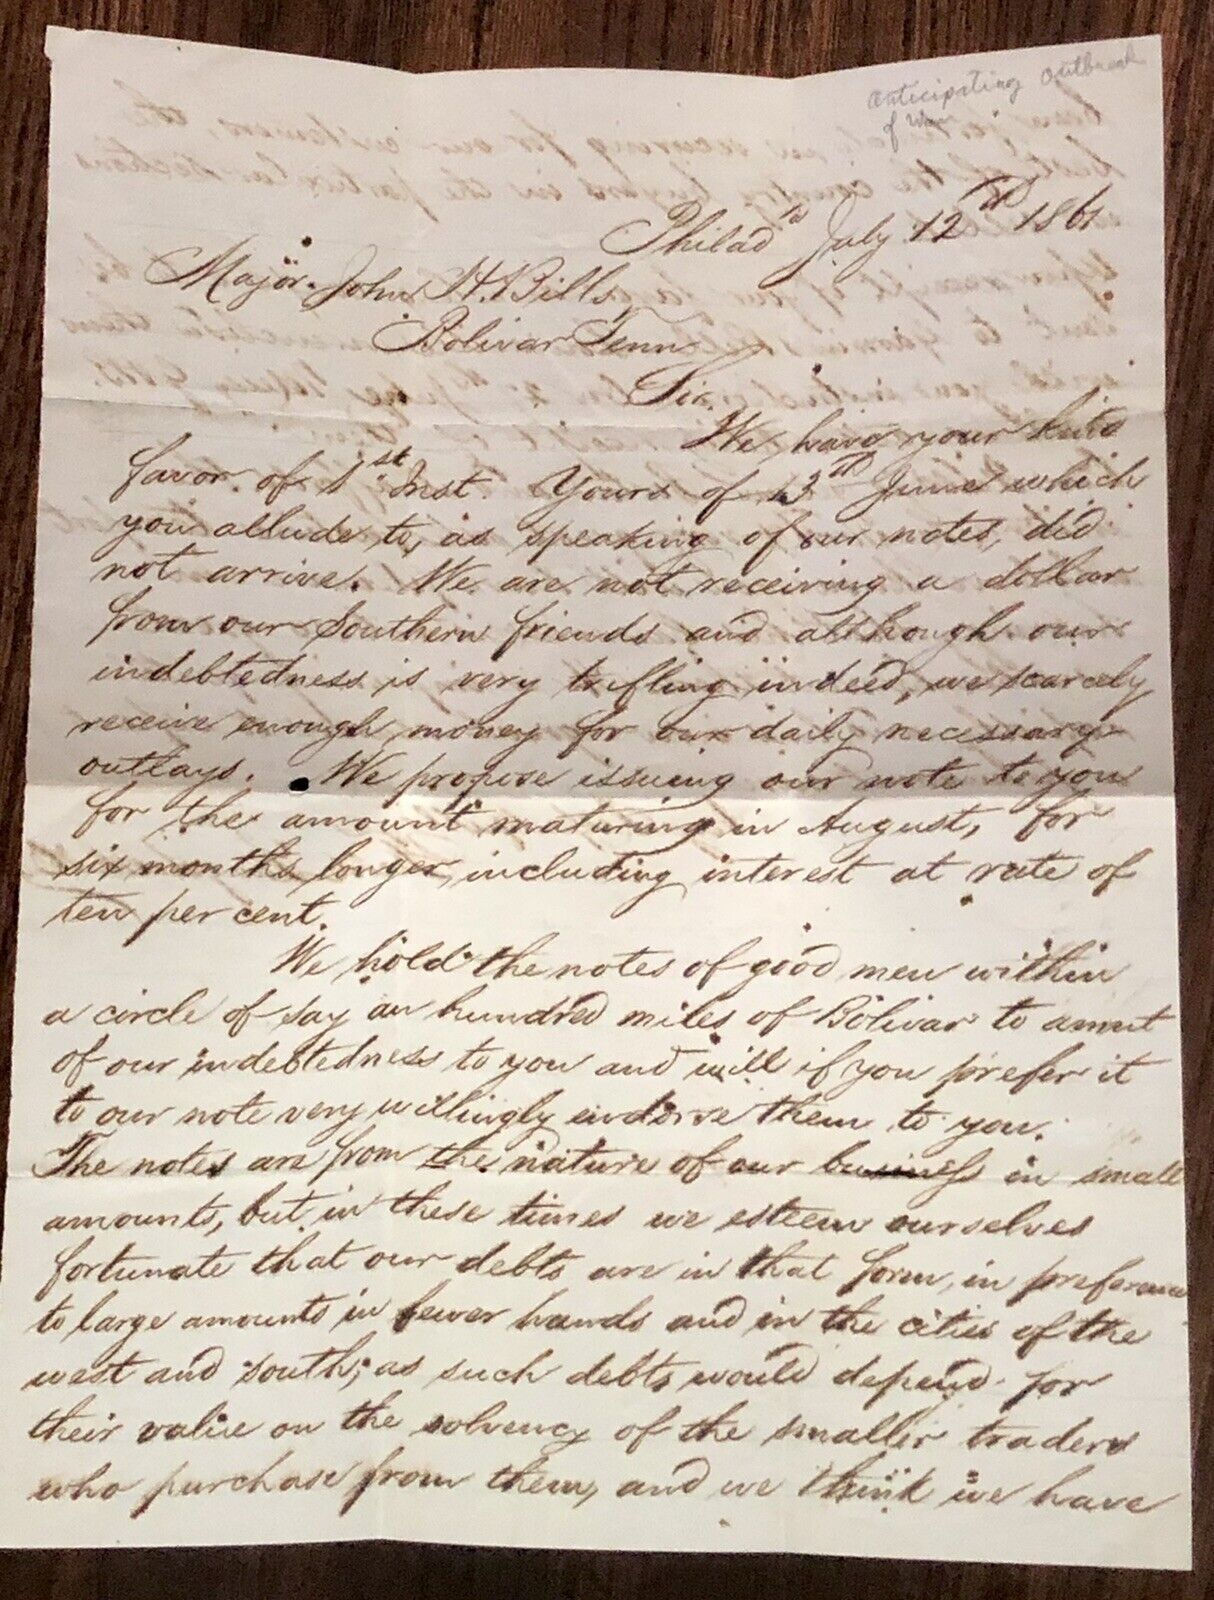 Anticipating Outbreak
of War
Philadᵃ July 12th 1861
Major. John H. Bills,
Bolivar Tenn
Sir.
We have your kind
favor of 1st Inst. Yours of 13th June which
you allude to, as speaking of our notes, did
not arrive. We are not receiving a dollar
from our Southern friends and although our
indebtedness is very trifling indeed, we scarcely
receive enough money for our daily necessary
outlays. We propose issuing our note to you
for the amount maturing in August, for
six months longer, including interest at rate of
ten per cent.
We hold the notes of good men within
a circle of say an hundred miles of Bolivar to amnt
of our indebtedness to you and will if you prefer it
to our note very willingly endorse them to you.
The notes are from the nature of our business in small
amounts, but in these times we esteem ourselves
fortunate that our debts are in that form, in preference
to large amounts in fewer hands and in the cities of the
west and south; as such debts would depend for
their value on the solvency of the smaller traders
who purchase from them, and we think we have